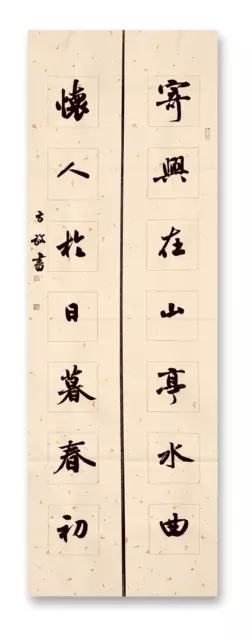 寄興在山亭水曲
懷人於日暮春初
方書